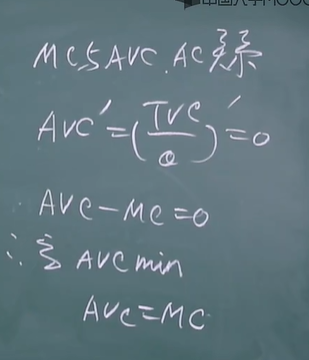 中国大学MOOC
MC与AVC.AC关系
AVC′=(TVC/Q)′=0
AVC-MC=0
∴当AVCmin
AVC=MC